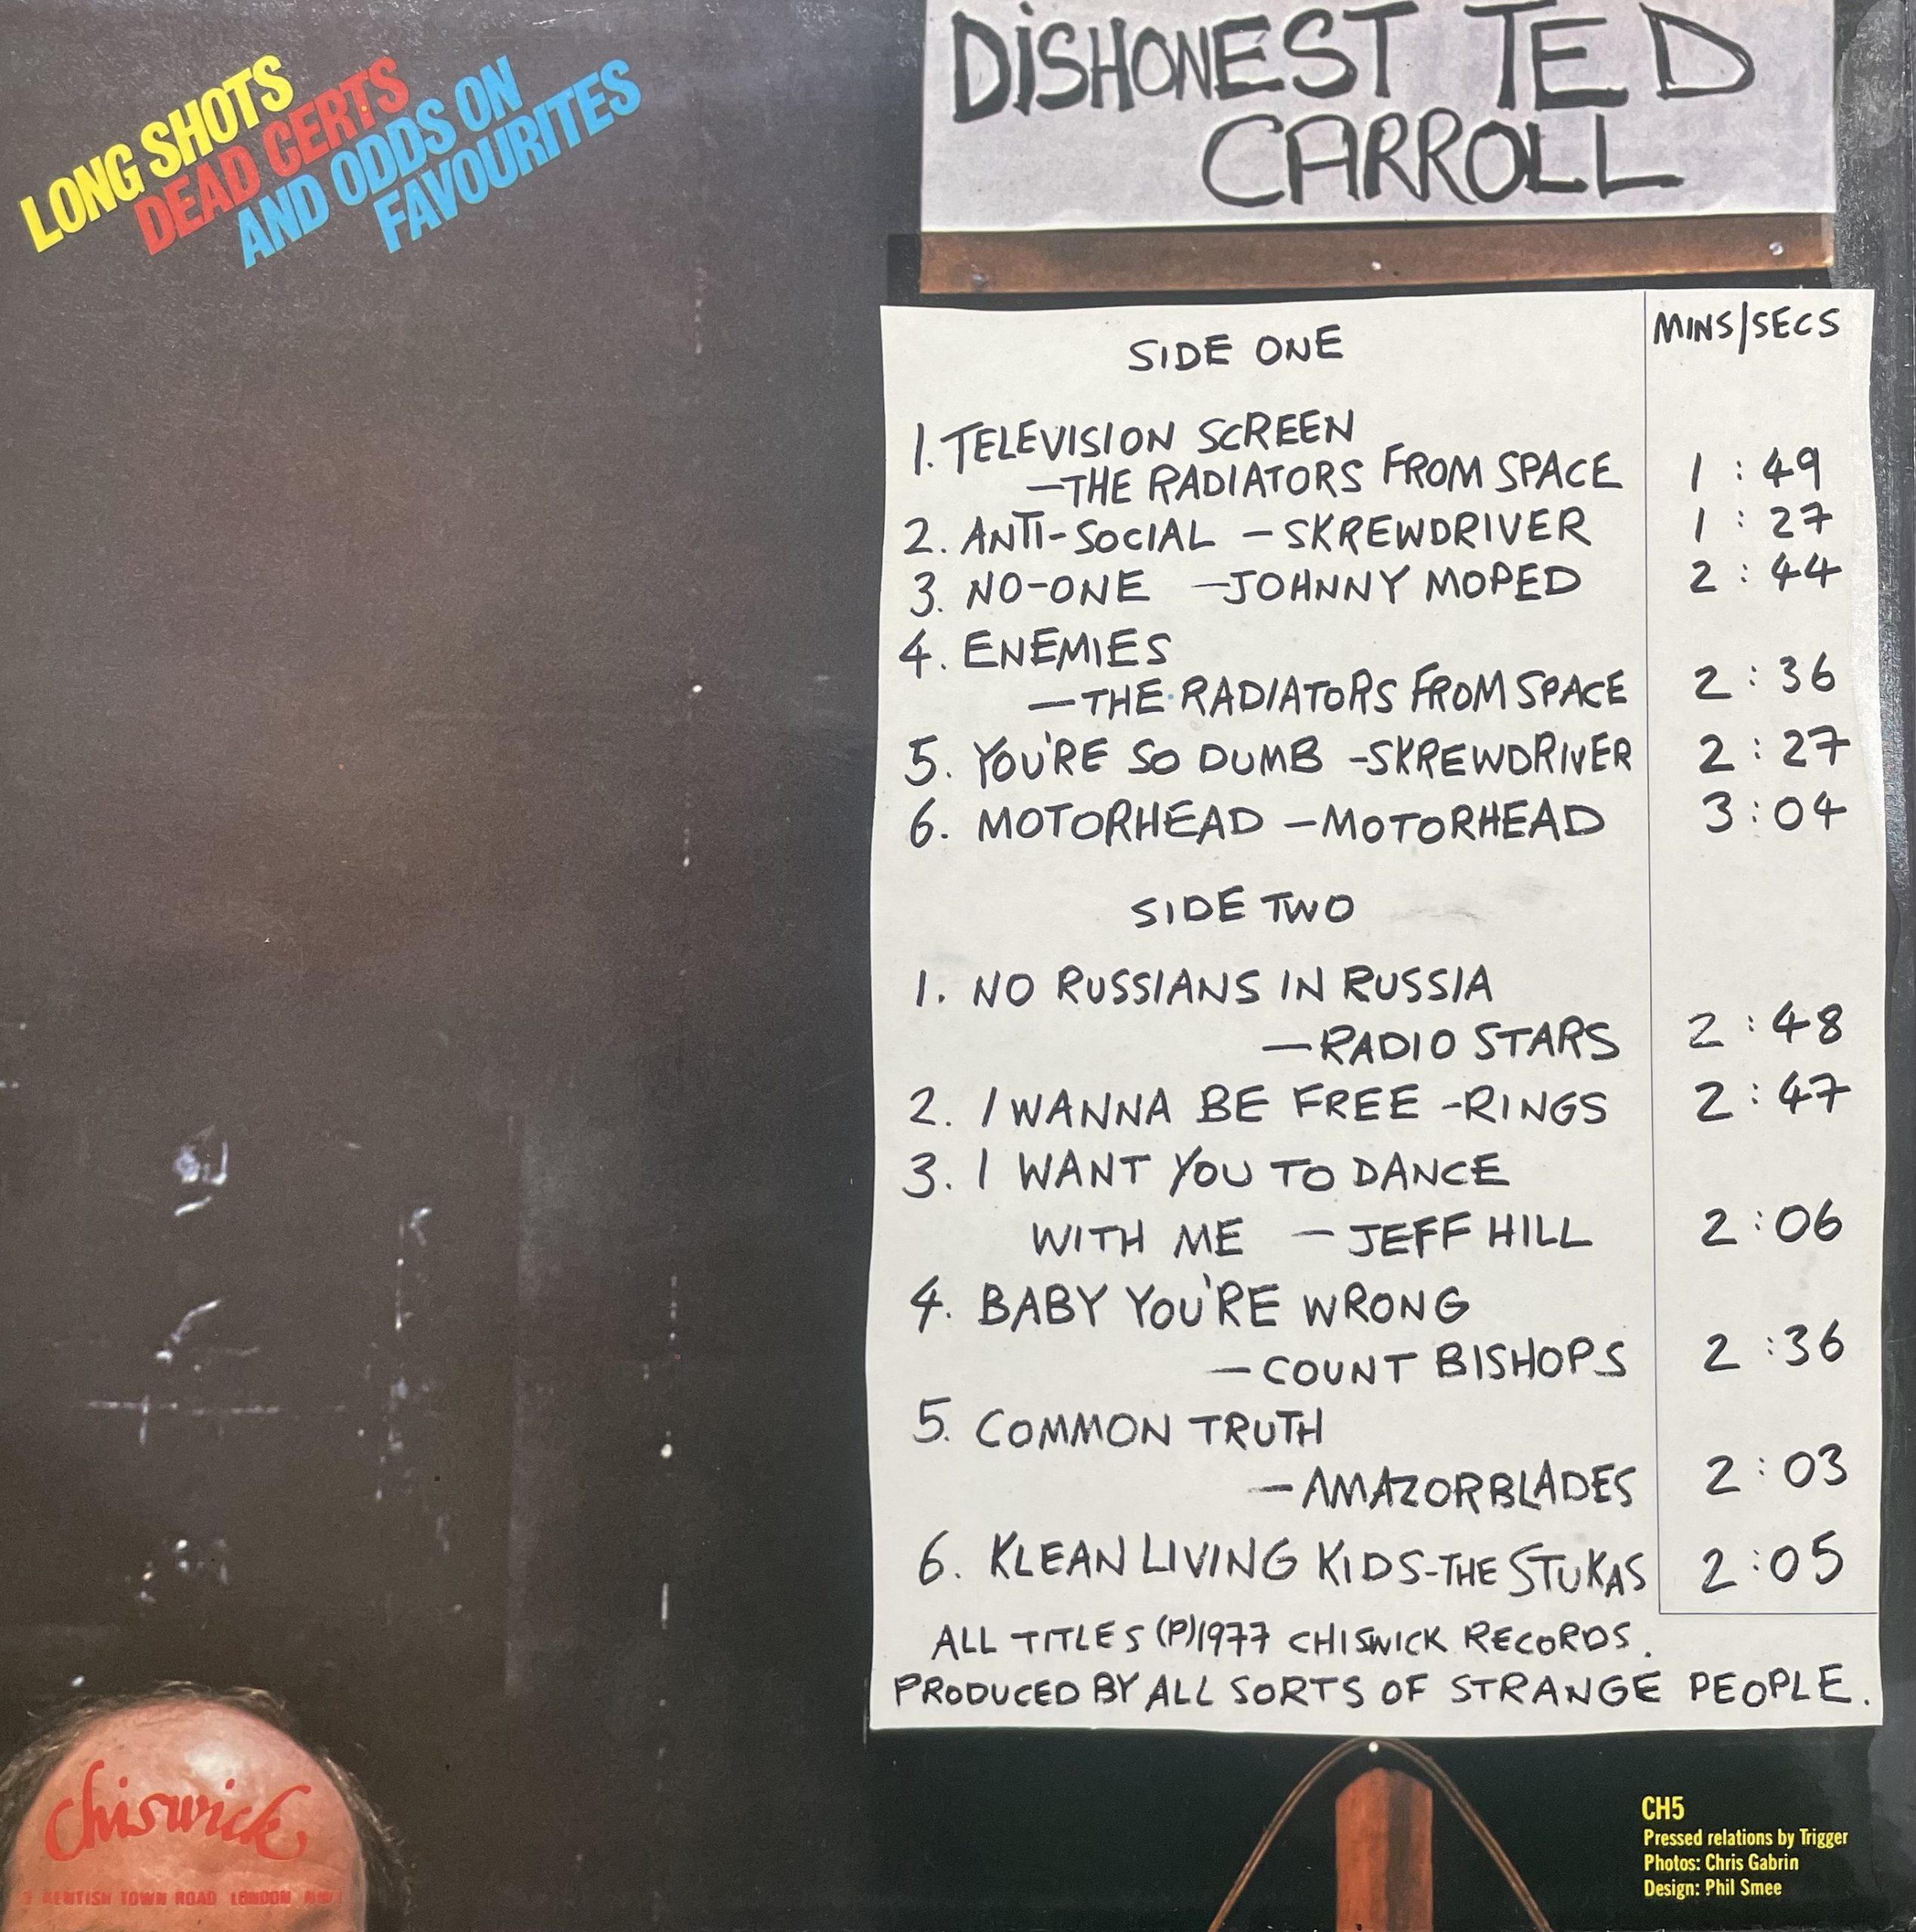 LONG SHOTS
DEAD CERTS
AND ODDS ON
FAVOURITES
DISHONEST TED
CARROLL
MINS/SECS
SIDE ONE
1. TELEVISION SCREEN
—THE RADIATORS FROM SPACE 1:49
2. ANTI-SOCIAL — SKREWDRIVER 1:27
3. NO-ONE —JOHNNY MOPED 2:44
4. ENEMIES
—THE RADIATORS FROM SPACE 2:36
5. YOU'RE SO DUMB -SKREWDRIVER 2:27
6. MOTORHEAD —MOTORHEAD 3:04
SIDE TWO
1. NO RUSSIANS IN RUSSIA
—RADIO STARS 2:48
2. I WANNA BE FREE -RINGS 2:47
3. I WANT YOU TO DANCE
WITH ME — JEFF HILL 2:06
4. BABY YOU'RE WRONG
—COUNT BISHOPS 2:36
5. COMMON TRUTH
—AMAZORBLADES 2:03
6. KLEAN LIVING KIDS-THE STUKAS 2:05
ALL TITLES (P)1977 CHISWICK RECORDS.
PRODUCED BY ALL SORTS OF STRANGE PEOPLE.
chiswick
KENTISH TOWN ROAD LONDON
CH5
Pressed relations by Trigger
Photos: Chris Gabrin
Design: Phil Smee